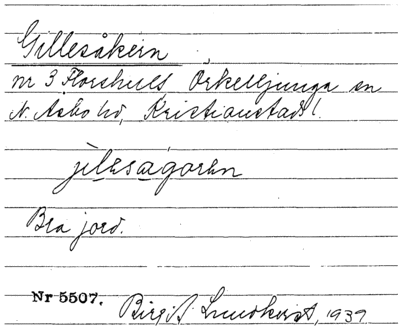 Gillesåkern
nr 3 Florshult Örkelljunga sn
N. Åsbo hd, Kristianstads l.
jìlesagoren
Bra jord.
Nr 5507. Birgit Lundkvist, 1939